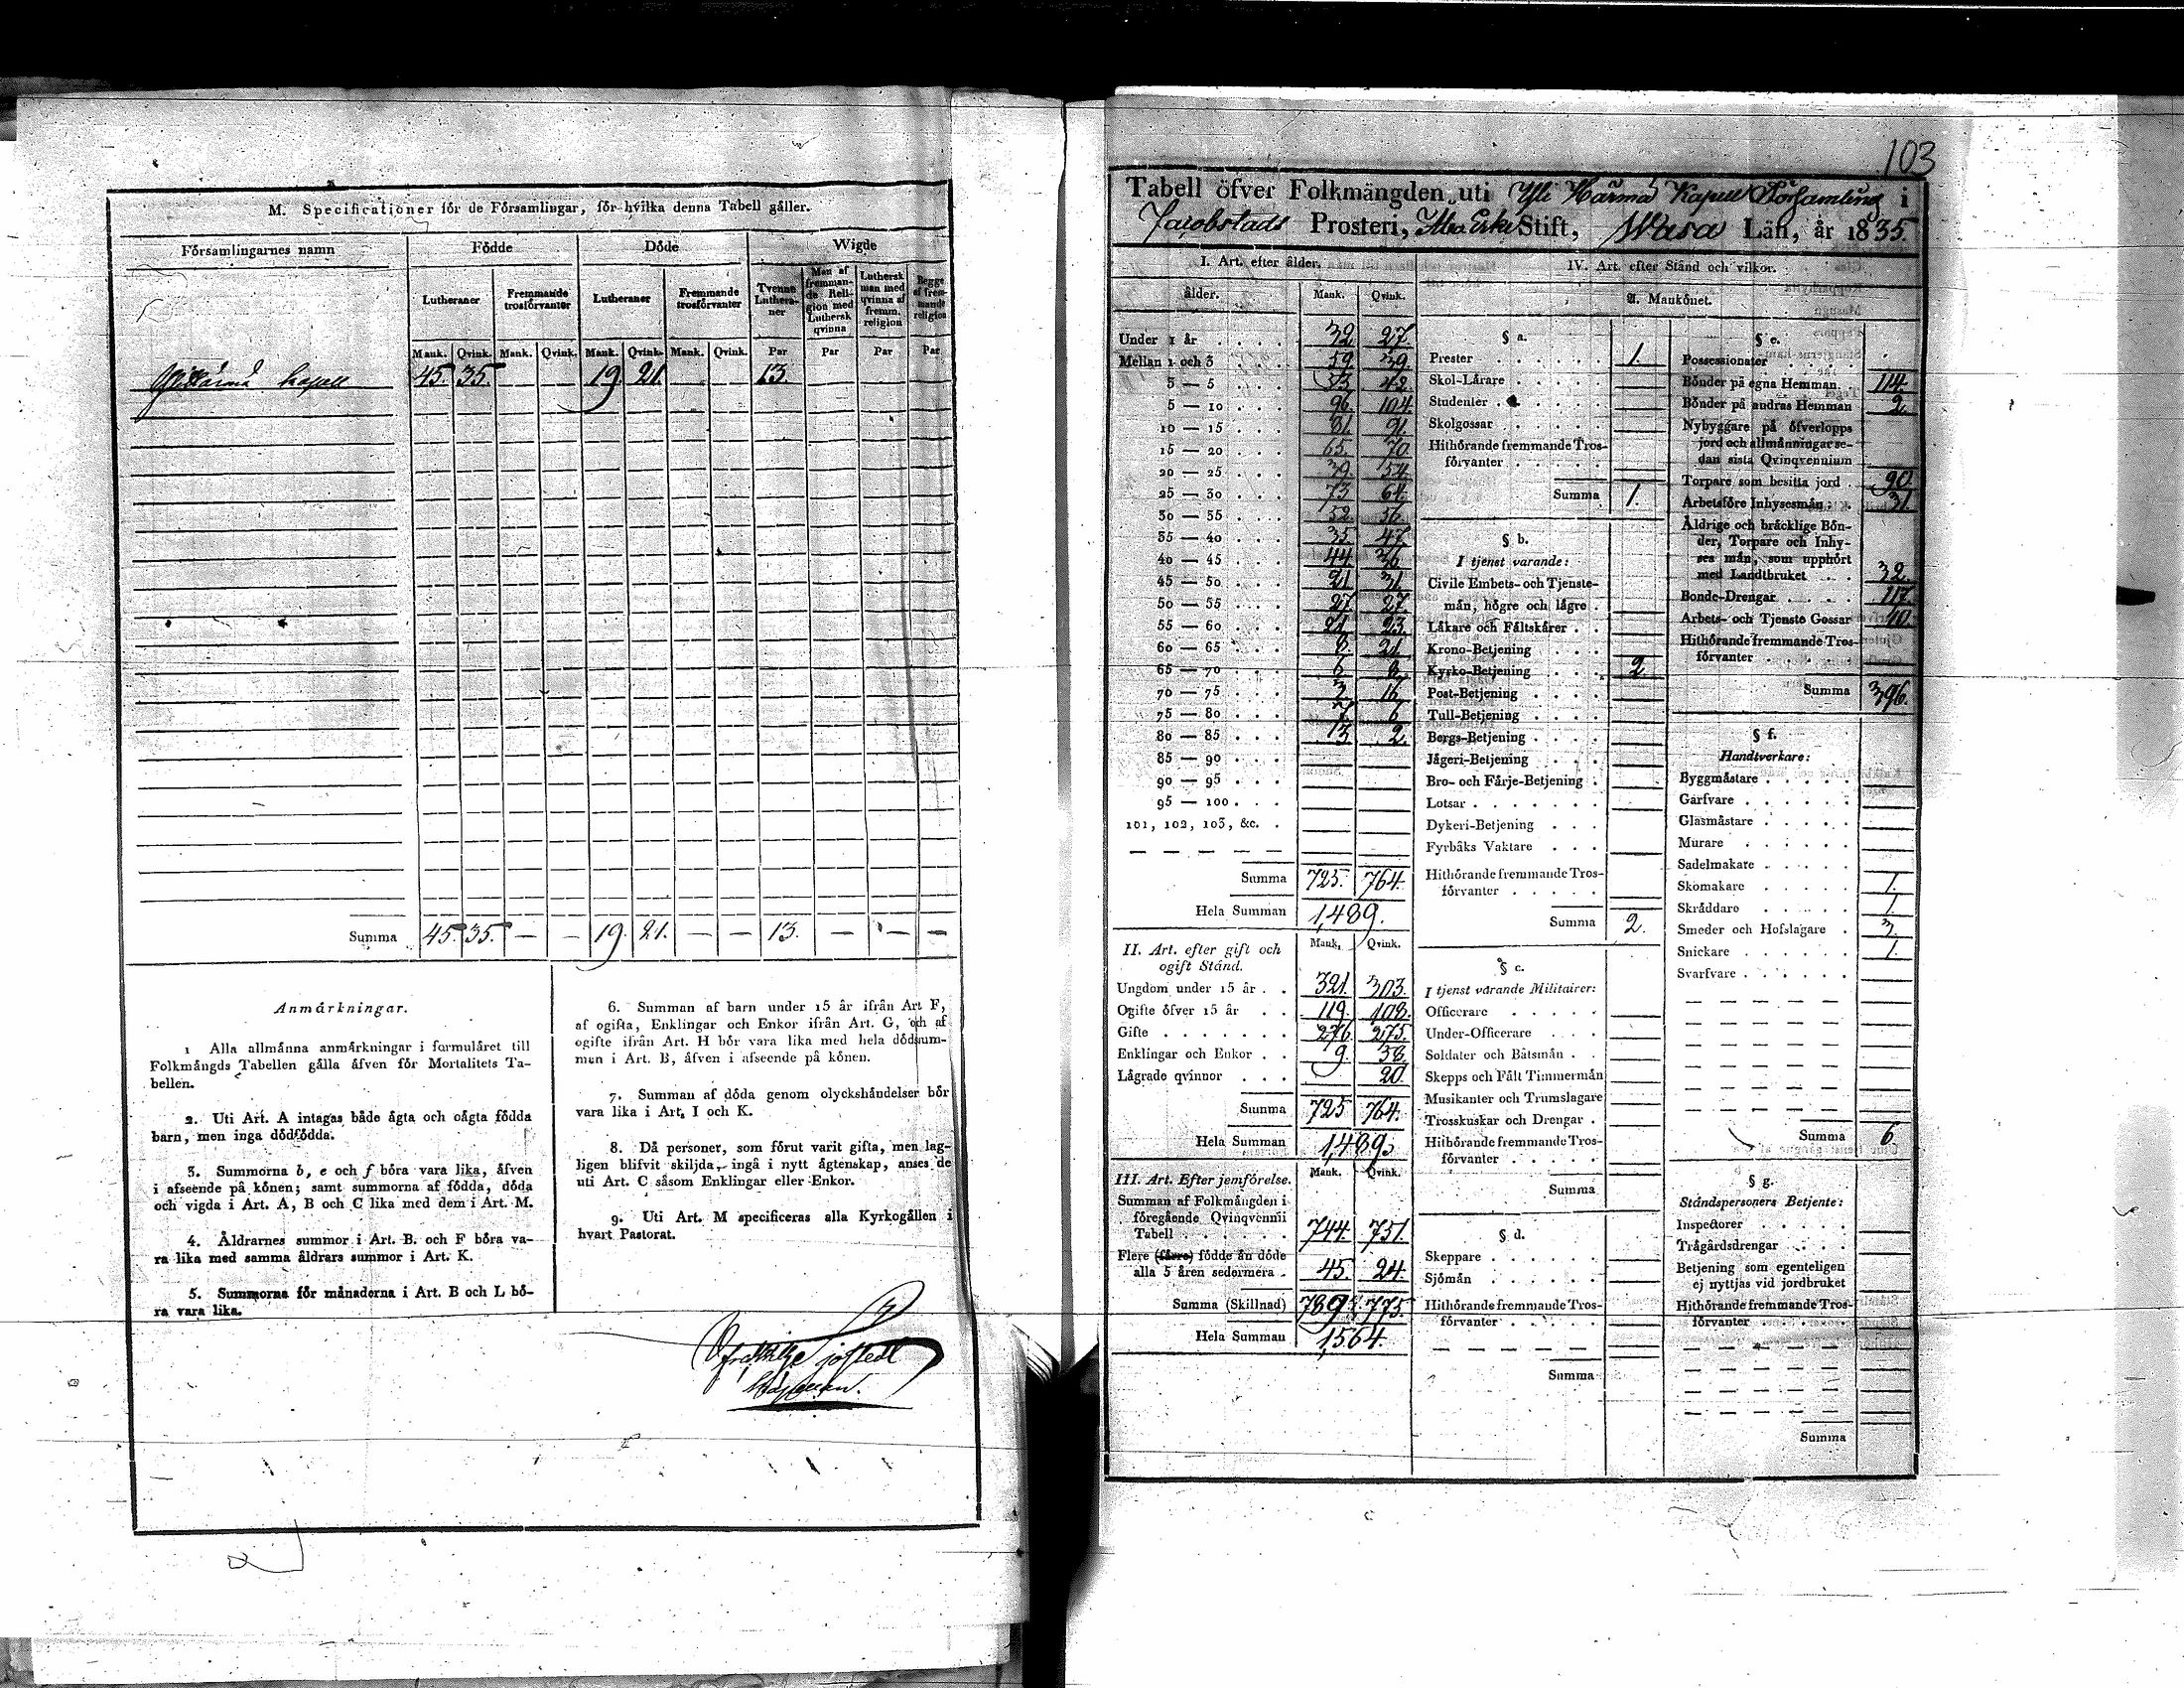 M. Specificationer för de Församlingar, för hvilka denna Tabell gäller.
Församlingarnes namn Födde Döde Wigde
Lutheraner Fremmande trosförvanter Lutheraner Fremmande trosförvanter Tvenne Lutheraner Man af fremmande Religion med Luthersk qvinna Luthersk man med qvinna af fremm. religion Begge af fremmande religion
Mank. Qvink. Mank. Qvink. Mank. Qvink. Mank. Qvink. Par Par Par Par
Kapell 45. 35. 19. 21. 13.
Summa 45. 35. — — 19. 21. — — 13. — — —
Anmärkningar.
1 Alla allmänna anmärkningar i formuläret till
Folkmängds Tabellen gälla äfven för Mortalitets Ta-
bellen.
2. Uti Art. A intagas både ägta och oägta födda
barn, men inga dödfödda.
3. Summorna b, e och f böra vara lika, äfven
i afseende på könen; samt summorna af födda, döda
och vigda i Art. A, B och C lika med dem i Art. M.
4. Åldrarnes summor i Art. B. och F böra va-
ra lika med samma åldrars summor i Art. K.
5. Summorna för månaderna i Art. B och L bö-
ra vara lika.
6. Summan af barn under 15 år ifrån Art F,
af ogifta, Enklingar och Enkor ifrån Art. G, och af
ogifte ifrån Art. H bör vara lika med hela dödsum-
man i Art. B, äfven i afseende på könen.
7. Summan af döda genom olyckshändelser bör
vara lika i Art. I och K.
8. Då personer, som förut varit gifta, men lag-
ligen blifvit skiljda, ingå i nytt ägtenskap, anses de
uti Art. C såsom Enklingar eller Enkor.
9. Uti Art. M specificeras alla Kyrkogällen i
hvart Pastorat.
103
Tabell öfver Folkmängden uti Yli Härmä Kapell Församling i
Jacobstads Prosteri, Stift, Wasa Län, år 1835.
I. Art. efter ålder.
ålder. Mank. Qvink.
Under 1 år 32 27.
Mellan 1 och 3 59. 39.
3 — 5 42.
5 — 10 96. 104.
10 — 15 81. 91.
15 — 20 65. 70.
20 — 25 39. 54.
25 — 30 73 64.
30 — 35 52. 56.
35 — 40 35. 47.
40 — 45 44. 36.
45 — 50 21. 31.
50 — 55 27. 27.
55 — 60 21. 23.
60 — 65 8. 21.
65 — 70
70 — 75 3. 16.
75 — 80 6.
80 — 85 2.
85 — 90
90 — 95
95 — 100
101, 102, 103, &c.
Summa 725. 764.
Hela Summan 1,489.
II. Art. efter gift och
ogift Stånd. Mank. Qvink.
Ungdom under 15 år 321. 303.
Ogifte öfver 15 år 119. 108.
Gifte 276. 275.
Enklingar och Enkor 9. 38.
Lägrade qvinnor 20.
Summa 725 764.
Hela Summan 1,489.
III. Art. Efter jemförelse. Mank. Qvink.
Summan af Folkmängden i
föregående Qvinqvennii
Tabell 744. 751.
Flere (färre) födde än döde
alla 5 åren sedermera 45. 24.
Summa (Skillnad) 789. 775.
Hela Summan 1,564.
IV. Art. efter Stånd och vilkor.
A. Mankönet.
§ a.
Prester 1.
Skol-Lärare
Studenter
Skolgossar
Hithörande fremmande Tros-
förvanter
Summa 1.
§ b.
I tjenst varande:
Civile Embets- och Tjenste-
män, högre och lägre
Läkare och Fältskärer
Krono-Betjening
Kyrko-Betjening 2.
Post-Betjening
Tull-Betjening
Bergs-Betjening
Jägeri-Betjening
Bro- och Färje-Betjening
Lotsar
Dykeri-Betjening
Fyrbåks Vaktare
Hithörande fremmande Tros-
förvanter
Summa 2.
§ c.
I tjenst varande Militairer:
Officerare
Under-Officerare
Soldater och Båtsmän
Skepps och Fält Timmermän
Musikanter och Trumslagare
Trosskuskar och Drengar
Hithörande fremmande Tros-
förvanter
Summa
§ d.
Skeppare
Sjömän
Hithörande fremmande Tros-
förvanter
Summa
§ e.
Possessionater
Bönder på egna Hemman 114.
Bönder på andras Hemman 2.
Nybyggare på öfverlopps
jord och allmänningar se-
dan sista Qvinqvennium
Torpare som besitta jord 90.
Arbetsföre Inhysesmän 31.
Åldrige och bräcklige Bön-
der, Torpare och Inhy-
ses män, som upphört
med Landtbruket 32.
Bonde-Drengar 117.
Arbets- och Tjenste Gossar 10.
Hithörande fremmande Tros-
förvanter
Summa 396.
§ f.
Handtverkare:
Byggmästare
Garfvare
Glasmästare
Murare
Sadelmakare
Skomakare 1.
Skräddare 1.
Smeder och Hofslagare 3.
Snickare 1.
Svarfvare
Summa 6.
§ g.
Ståndspersoners Betjente:
Inspectorer
Trägårdsdrengar
Betjening som egenteligen
ej nyttjas vid jordbruket
Hithörande fremmande Tros-
förvanter
Summa